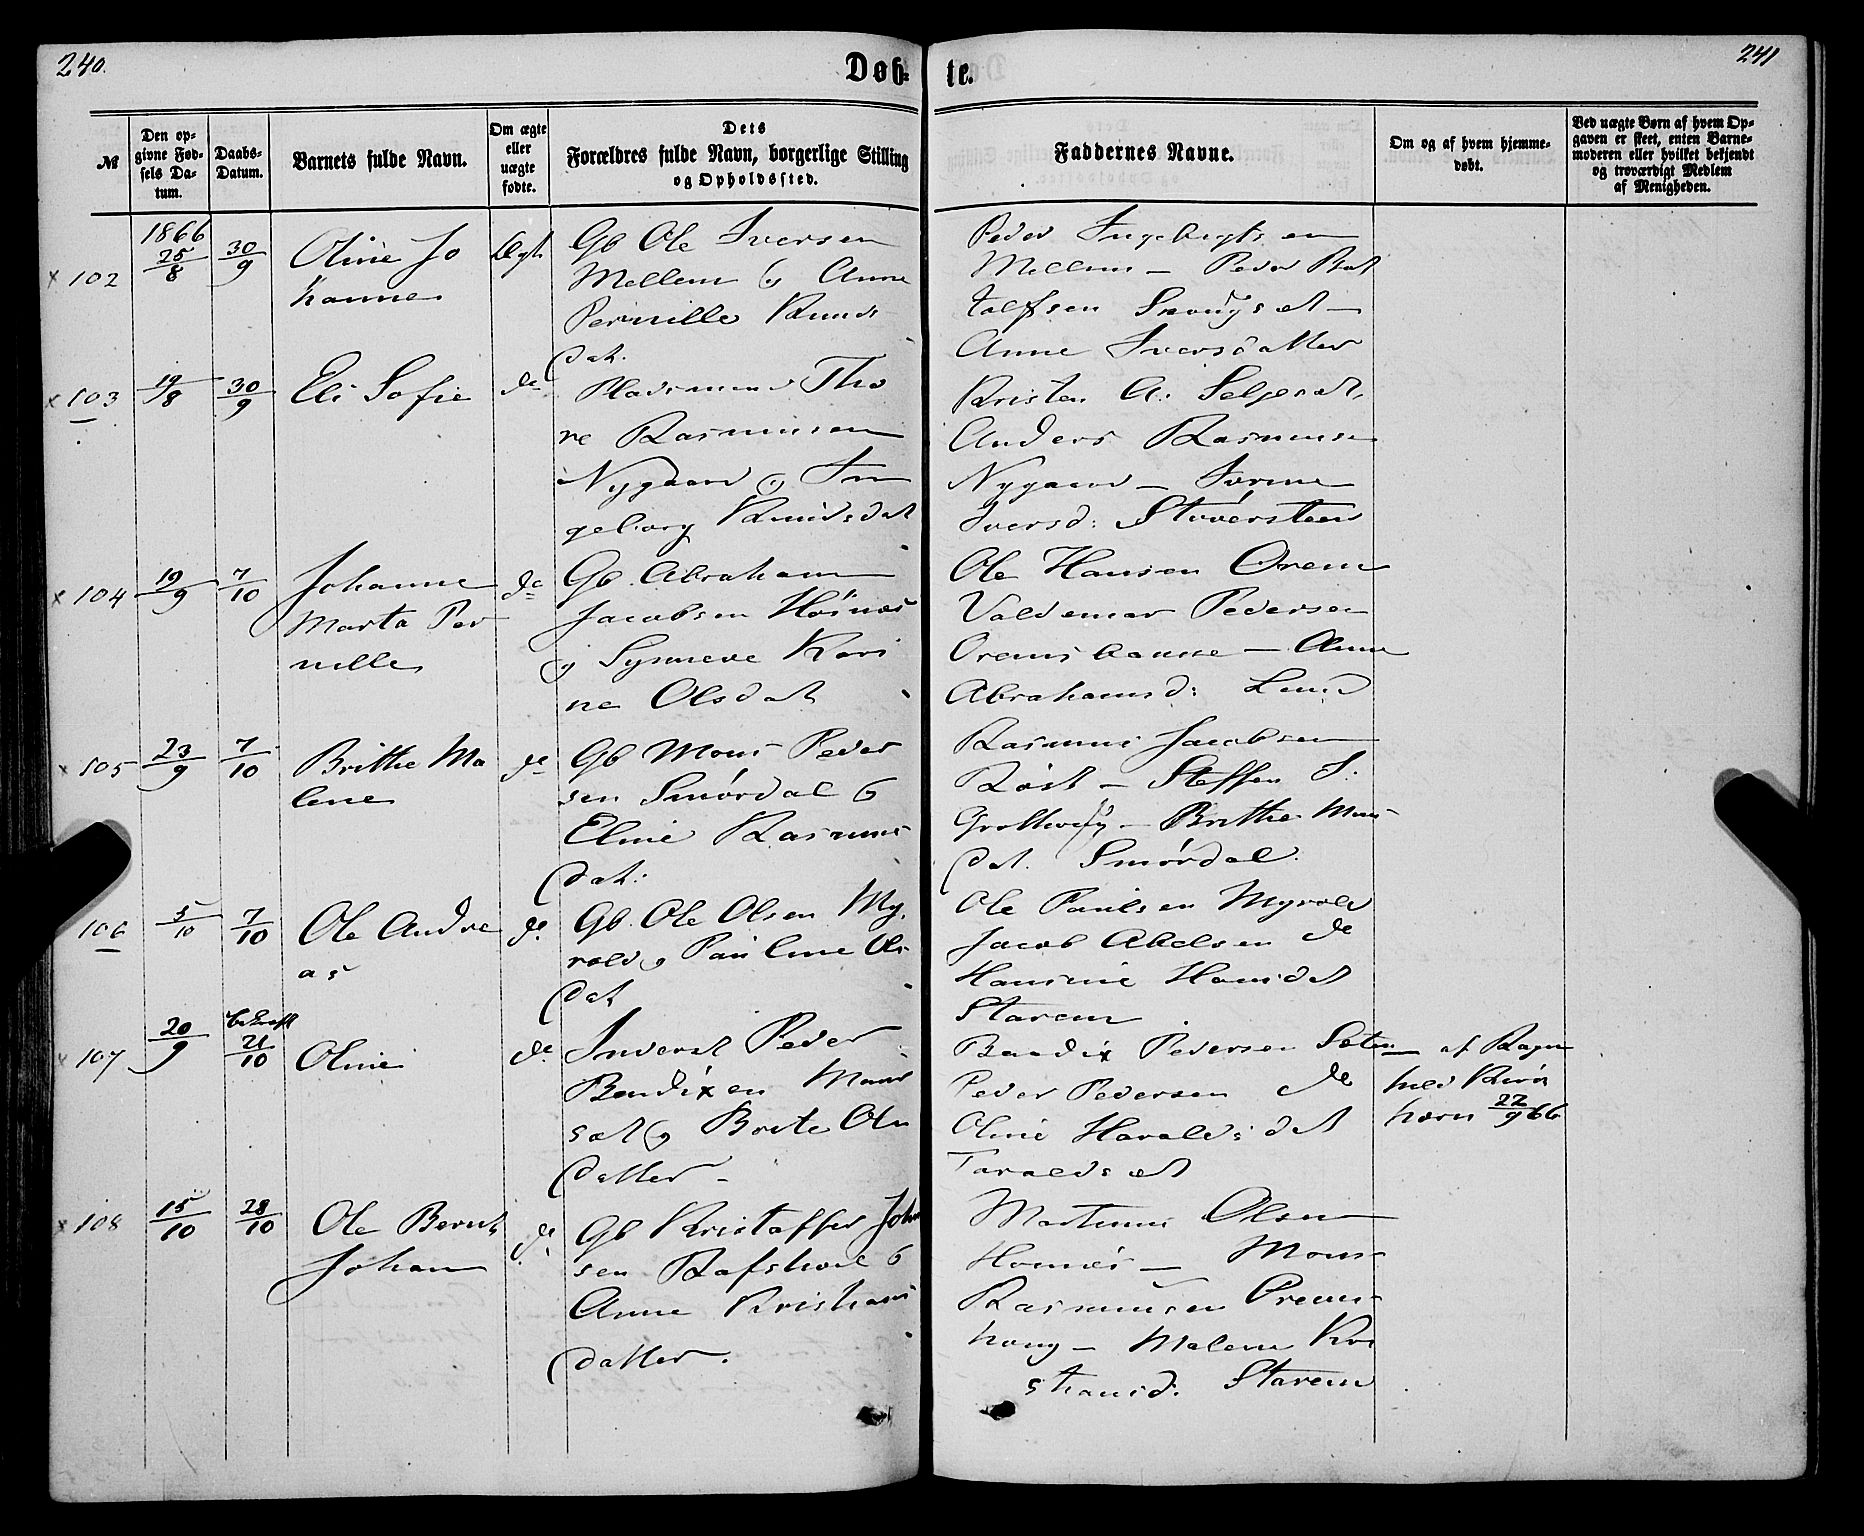 240.
Døb-
te.
241
№
Den op-
givne Fød-
sels Da-
tum.
Daabs-
Datum.
Barnets fulde Navn.
Om ægte
eller
uægte
fødte.
Dets
Forældres fulde Navn, borgerlige Stilling
og Opholdssted.
Faddernes Navne.
Om og af hvem hjemme-
døbt.
Ved uægte Børn af hvem Op-
gaven er skeet, enten Barne-
moderen eller hvilket bekjendt
og troværdigt Medlem
af Menigheden.
1866
x 102 25/8 30/9 Oline Jo
hanne
Ægt.
Gb Ole Iversen
Mellem og Anne
Pernille Knuds
dat.
Peder Ingebrigtsen
Mellem — Peder Bot
tolfsen —
Anne Iversdatter
x 103 19/8 30/9 Eli Sofie do
Pladsmand Tho
re Rasmussen
Nygaard og In
geborg Knudsdat
Kristen A. Seljeset,
Anders Rasmusen
Nygaard —
Iversd: Støversteen
x 104 19/9 7/10 Johanne
Marta Per
nille
do
Gb. Abraham
Jacobsen Hornæs
og Synneve Kari
ne Olsdat
Ole Hansen Orem
Valdemar Pedersen
— Anne
Abrahamsd: Lund
x 105 23/9 7/10 Brithe Ma
lene
do
Gb Mons Peder
sen Smørdal &
Eline Rasmus
dat:
Rasmus Jacobsen
— Steffen I:
— Brithe Mons
dat. Smørdal.
106 5/10 7/10 Ole Andre
as
do
Gb. Ole Olsen My.
rold og Pauline Ols
dat
Ole Paulsen Myrold
Jacob Abelsen do
Hansine Hansdat
Starem
x 107 20/9 bekræft
21/10 Oline do
Inderst Peder
Bendixen Mans
sæt og Brite Ols
datter —
Bendix Pedersen
Peder Pedersen do
Oline Haraldsdat
Taraldset
— af Ragn
hild
22/9 66
x 108 15/10 28/10 Ole Bernt
Johan
do.
Gb Kristoffer Johan
sen Rafshol &
Anne Kristians
datter.
Martinus Olsen
Hornæs — Mons
Rasmusen Orems
houg — Malene Kri
stiansd. Starem